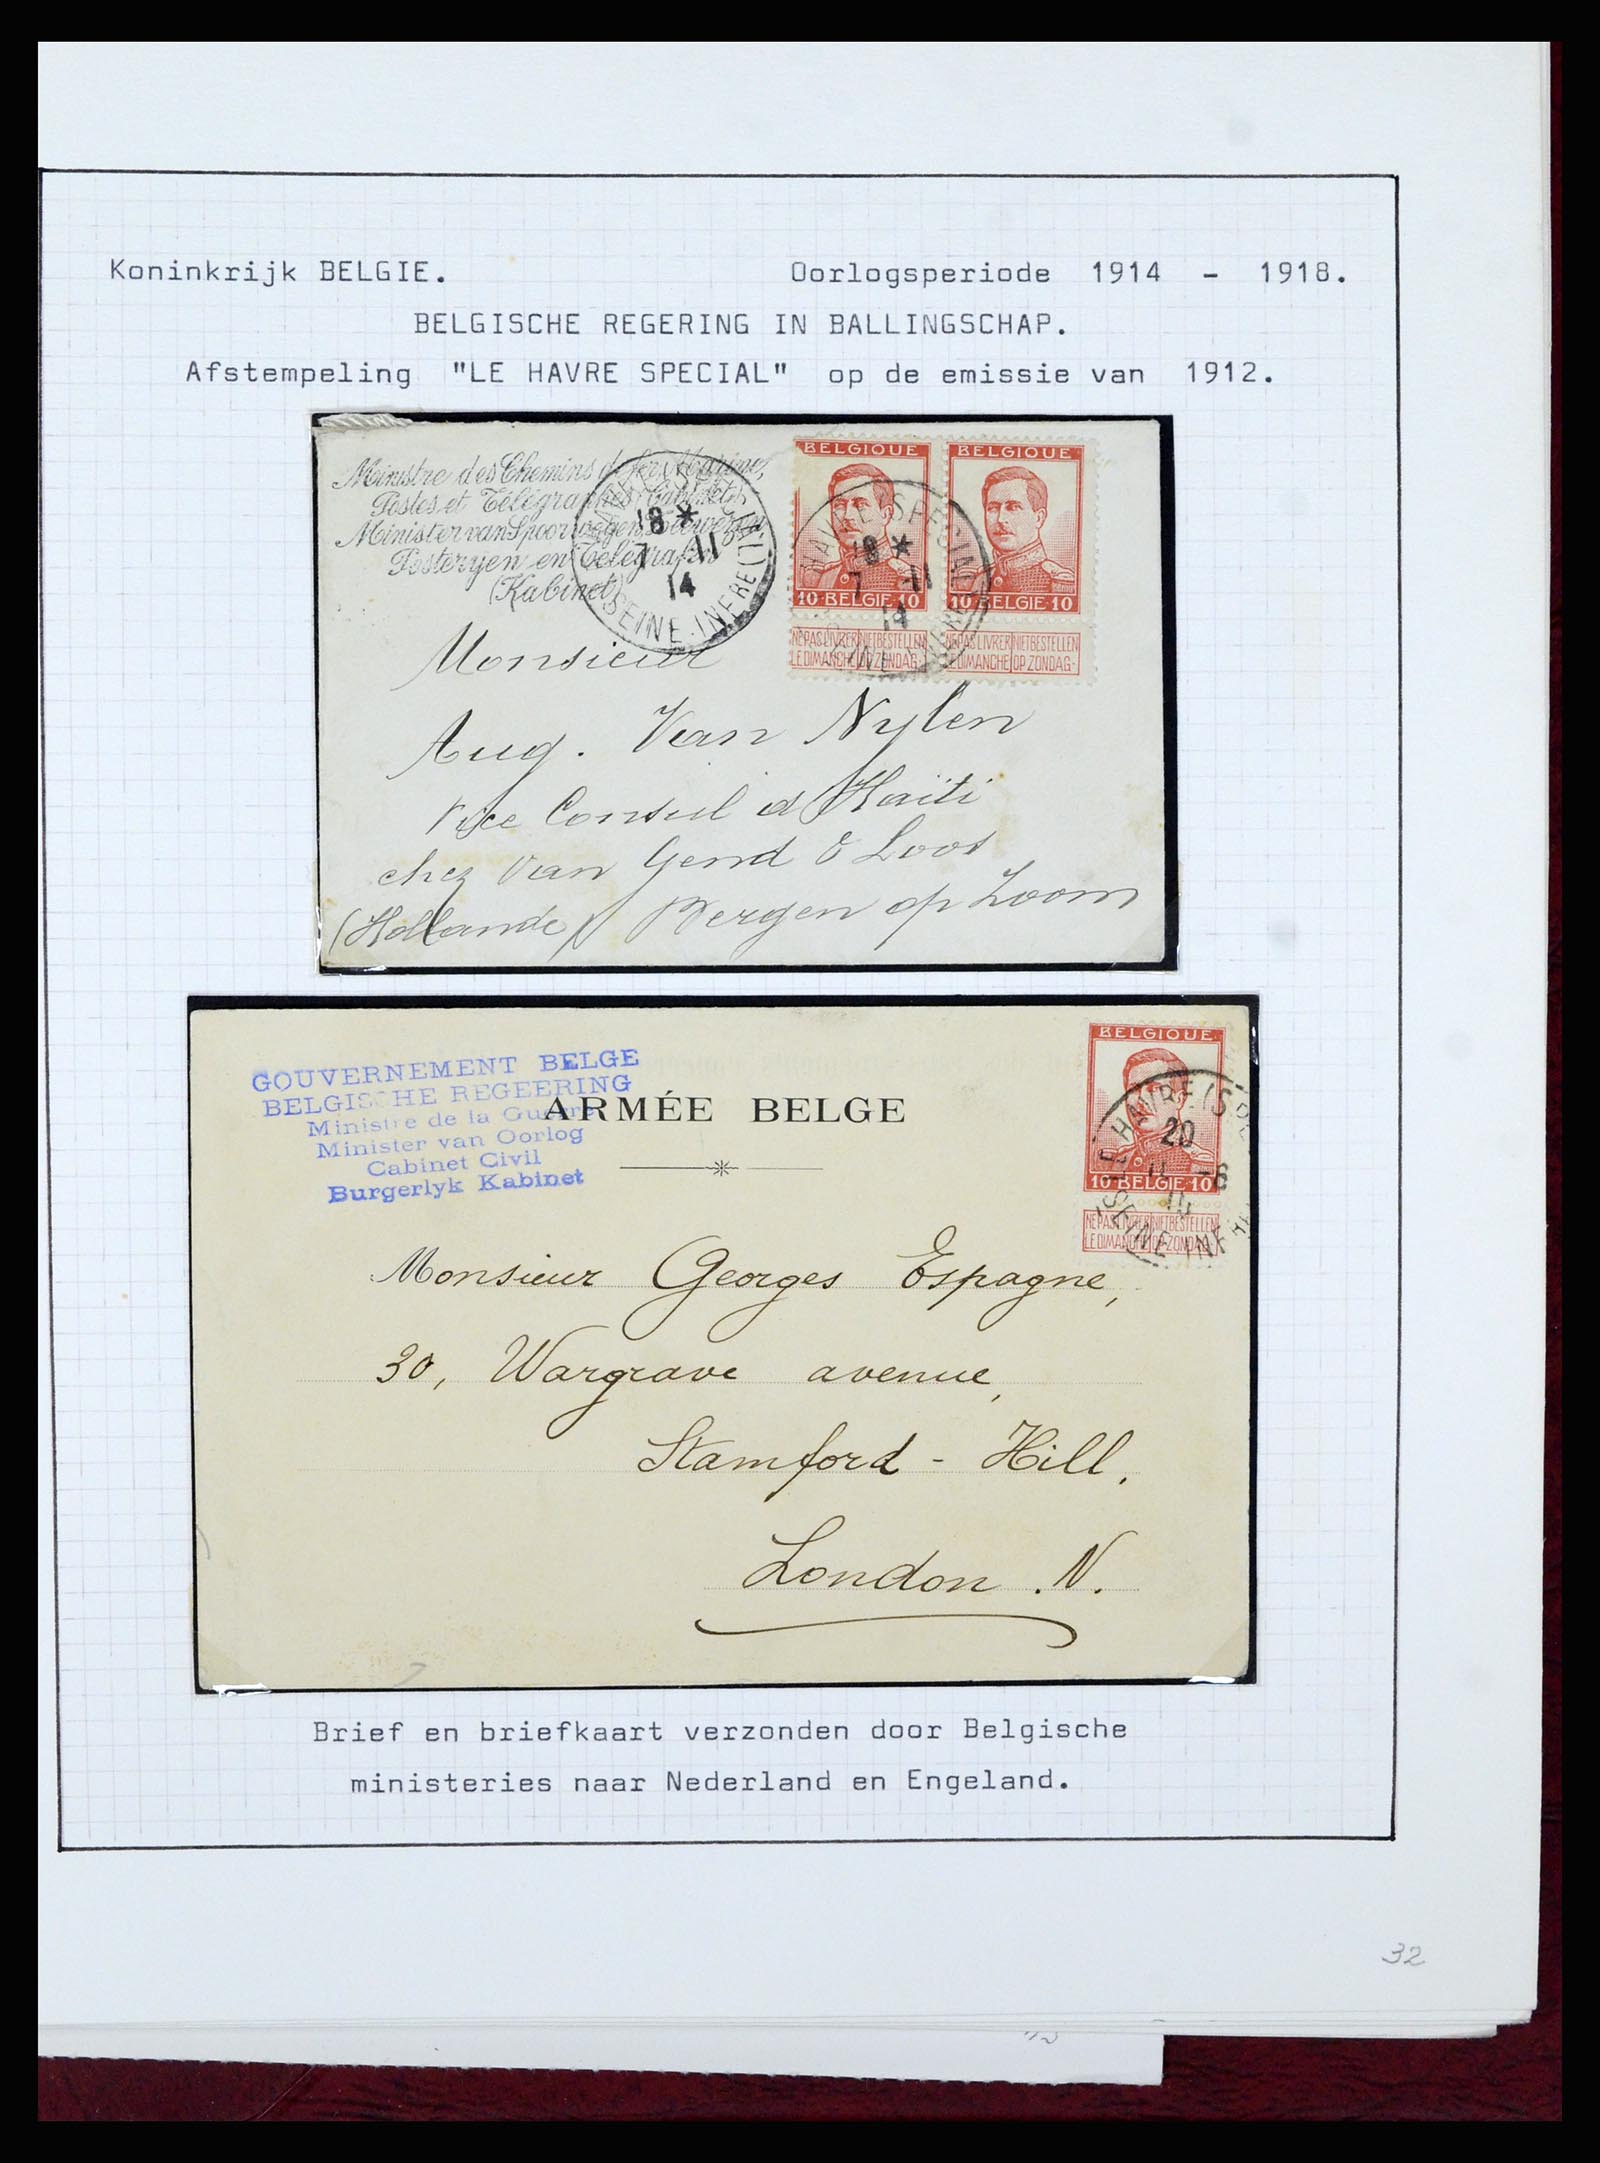 Koninkrijk BELGIE. Oorlogsperiode 1914 - 1918.
BELGISCHE REGERING IN BALLINGSCHAP.
Afstempeling "LE HAVRE SPECIAL" op de emissie van 1912.
Ministre des Chemins de fer, Marine,
Postes et Télégraphes (Cabinet)
Minister van Spoorwegen, Zeewezen
Posteryen en Télégrafen
(Kabinet)
18 *
7 -11
14
SEINE-INFRE (I)
BELGIQUE
10 BELGIE 10
NE PAS LIVRER NIET BESTELLEN
LE DIMANCHE OP ZONDAG
BELGIQUE
10 BELGIE 10
NE PAS LIVRER NIET BESTELLEN
LE DIMANCHE OP ZONDAG
HAVRE (SPECIAL)
18 *
7 -11
14
Monsieur
Aug. Van Nylen
Vice Consul d'Haïti
chez Van Gend & Loos
(Hollande) Bergen op Zoom
GOUVERNEMENT BELGE
BELGISCHE REGEERING
Ministre de la Guerre
Minister van Oorlog
Cabinet Civil
Burgerlyk Kabinet
ARMÉE BELGE
BELGIQUE
10 BELGIE 10
NE PAS LIVRER NIET BESTELLEN
LE DIMANCHE OP ZONDAG
HAVRE (SPE
20
-6
SEINE INF
Monsieur Georges Espagne,
30, Wargrave avenue,
Stamford - Hill.
London. N.
Brief en briefkaart verzonden door Belgische
ministeries naar Nederland en Engeland.
32